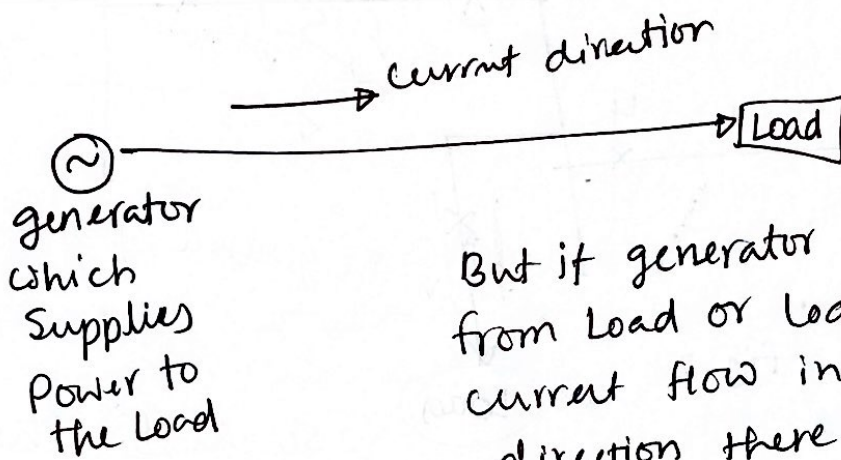 current direction
Load
generator
which
Supplies
Power to
the Load
But if generator
from Load or
current flow in
direction there